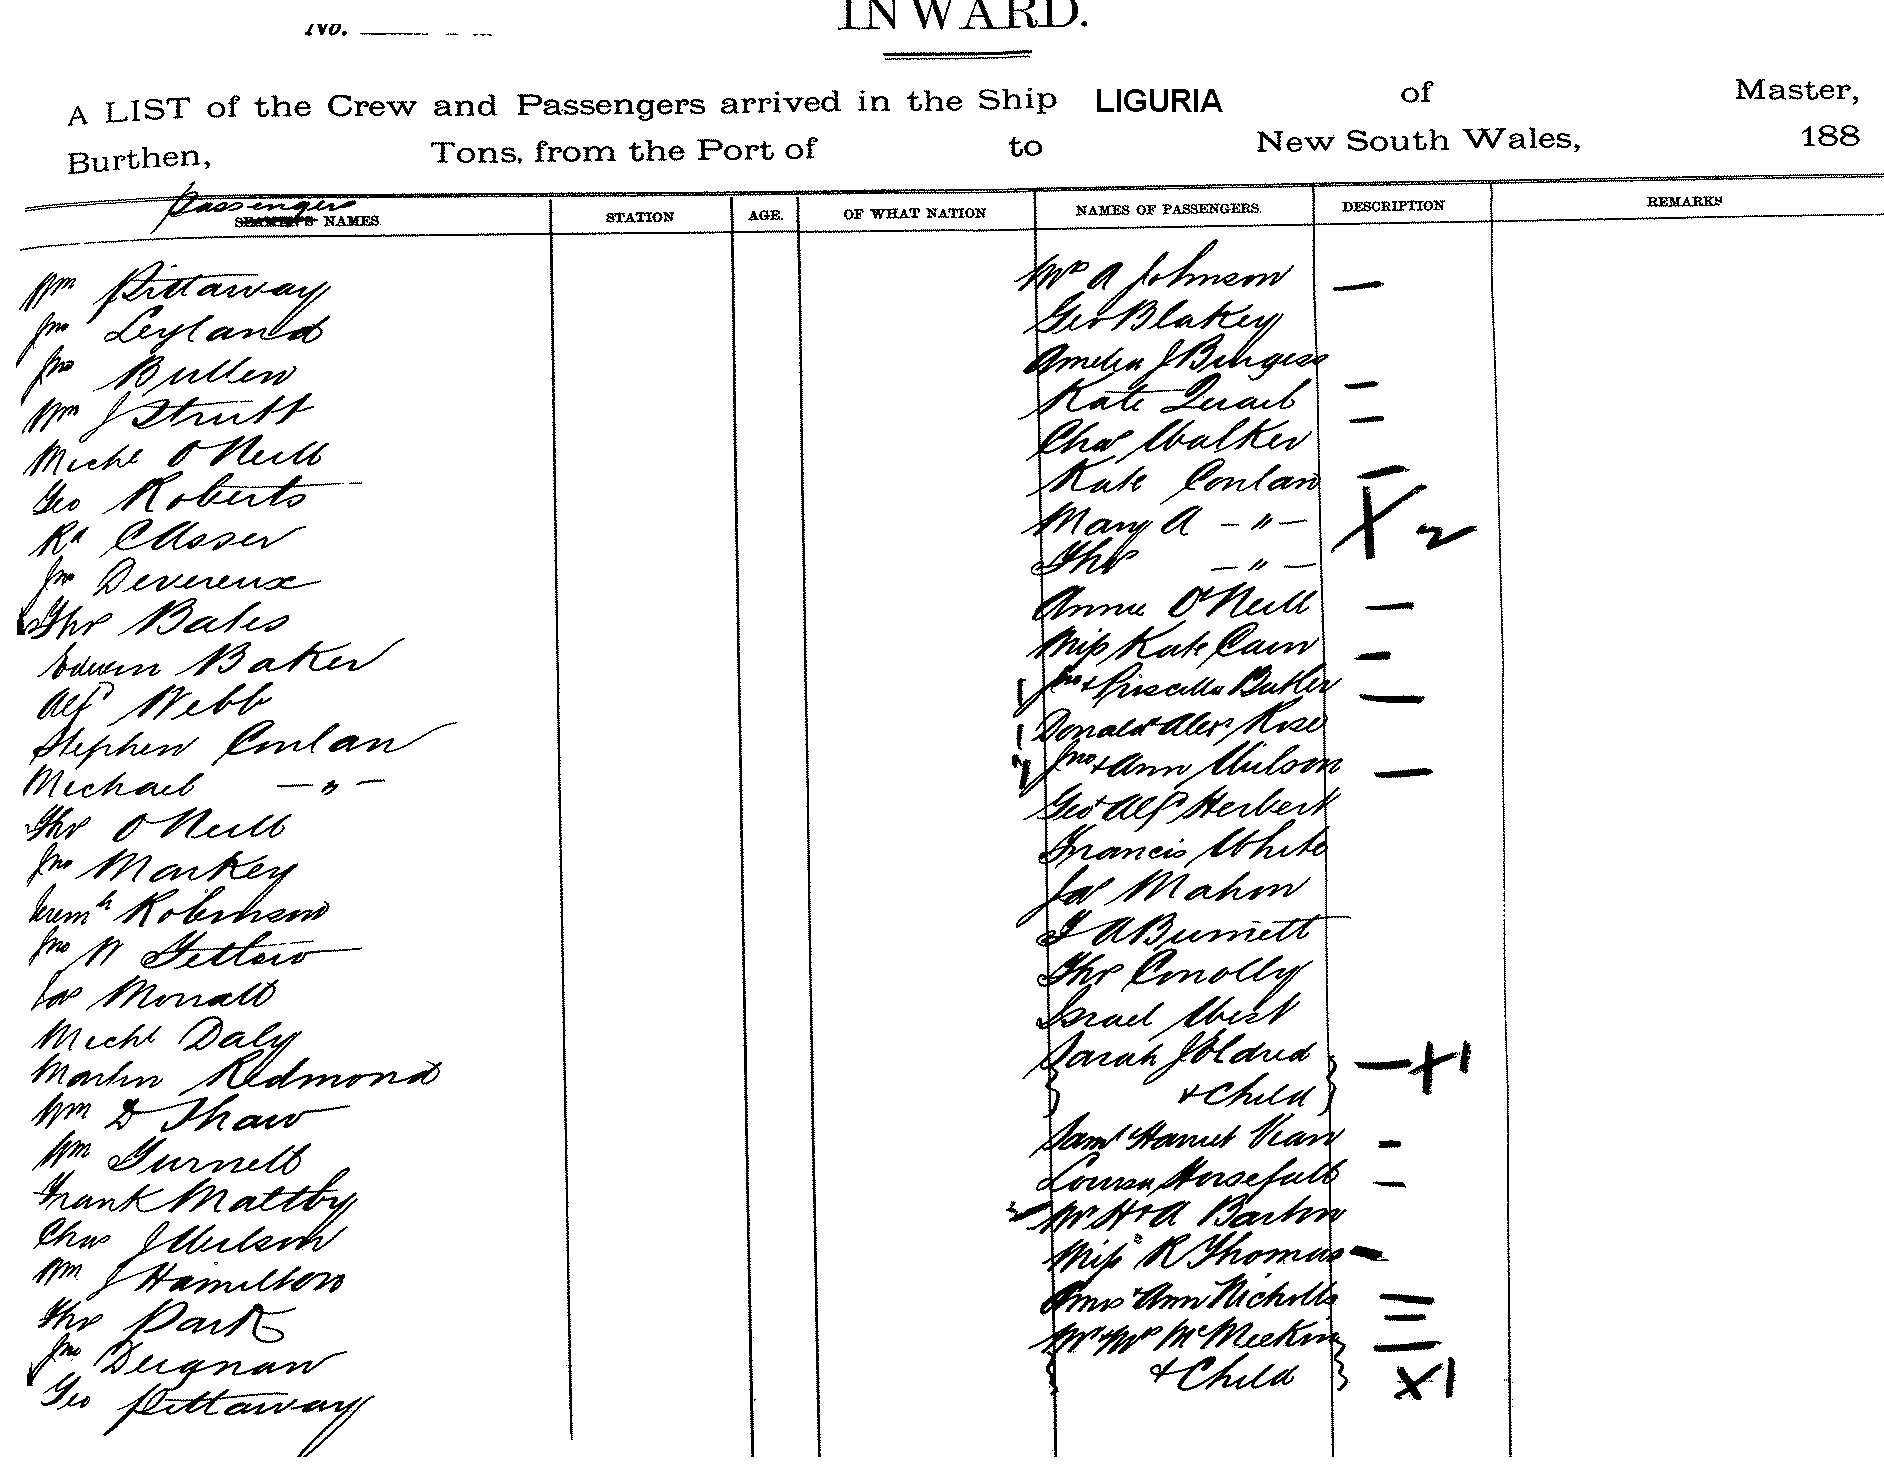 No.
INWARD.
A LIST of the Crew and Passengers arrived in the Ship LIGURIA of Master,
Burthen, Tons, from the Port of to New South Wales, 188
Passengers
SEAMEN'S NAMES STATION AGE. OF WHAT NATION NAMES OF PASSENGERS. DESCRIPTION REMARKS
Wm Pittaway
Jno Leyland
Jno Bullen
Wm J Strutt
Michl O Neill
Geo Roberts
Rd C Asser
Jno Devereux
Thos Bates
Edwin Baker
Alf Webb
Stephen Conlan
Michael — " —
Thos O Neill
Jno Markey
Jeremh Robinson
Jno W Tetlow
Jas Morratt
Michl Daly
Martin Redmond
Wm D Thaw
Wm Gurnett
Frank Maltby
Chas J Wilson
Wm J Hamilton
Thos Park
Jno Deignan
Geo Pittaway
Mrs A Johnson —
Geo Blakey
Amelia J Burgess
Kate Quail —
Chas Walker —
Kate Conlan —
Mary A — " — X 2
Thos — " —
Annie O'Neill —
Miss Kate Cain —
Jno + Priscilla Butler —
Donald Alexr Rose
Jno + Ann Wilson —
Geo Alf Herbert
Francis White
Jas Mahon
T A Burnett
Thos Conolly
Israel West
Sarah J Eldred — X 1
+ Child
Saml Harriet Vean —
Louisa Horsefall —
Mr H + A Barton
Miss R Thomas —
Amos + Ann Nicholls —
Mr + Mrs McMeekin —
+ Child X 1